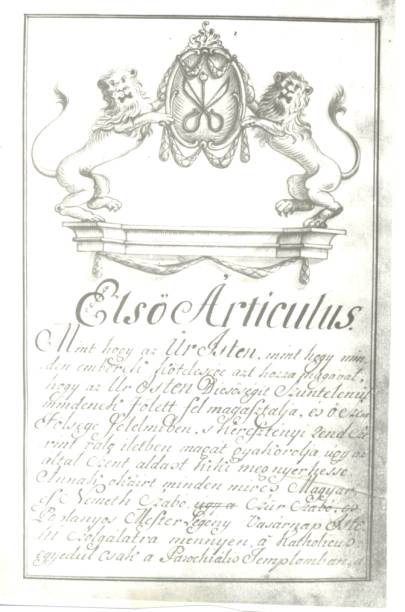 Első Articulus.
Mint hogy az Úr Isten, mint hogy min-
den embernek kötelessége azt hozza magával,
hogy az Úr Isten Dicsőségit Szüntelenül
mindenek fölött fel magasztalja, és ő szent
Fölsége félelmiben, s keresztényi rend sze
rint való életben magát gyakorolja úgy az
által szent áldást hihi meg nyerhesse.
Annak okáért minden míves Magyar,
s Német Szabó, ugy a Szür Szabó, és
Paplanyos Mester Legény Vasárnap Iste
ni szolgálatra mennyen, a Katholicus
egyedül csak a Parochiális Templomban, a